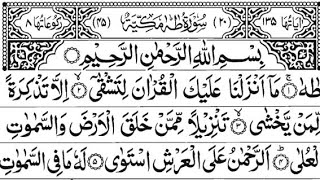 اٰیَاتُهَا ۱۳۵ (۲۰) سُوْرَةُ طٰهٰ مَكِّیَّةٌ (۴۵) رُكُوْعَاتُهَا ۸
بِسْمِ اللّٰهِ الرَّحْمٰنِ الرَّحِیْمِ
طٰهٰ ۱ مَاۤ اَنْزَلْنَا عَلَیْكَ الْقُرْاٰنَ لِتَشْقٰۤی ۲ اِلَّا تَذْكِرَةً
لِّمَنْ یَّخْشٰی ۳ تَنْزِیْلًا مِّمَّنْ خَلَقَ الْاَرْضَ وَالسَّمٰوٰتِ
الْعُلٰی ۴ اَلرَّحْمٰنُ عَلَی الْعَرْشِ اسْتَوٰی ۵ لَهٗ مَا فِی السَّمٰوٰتِ